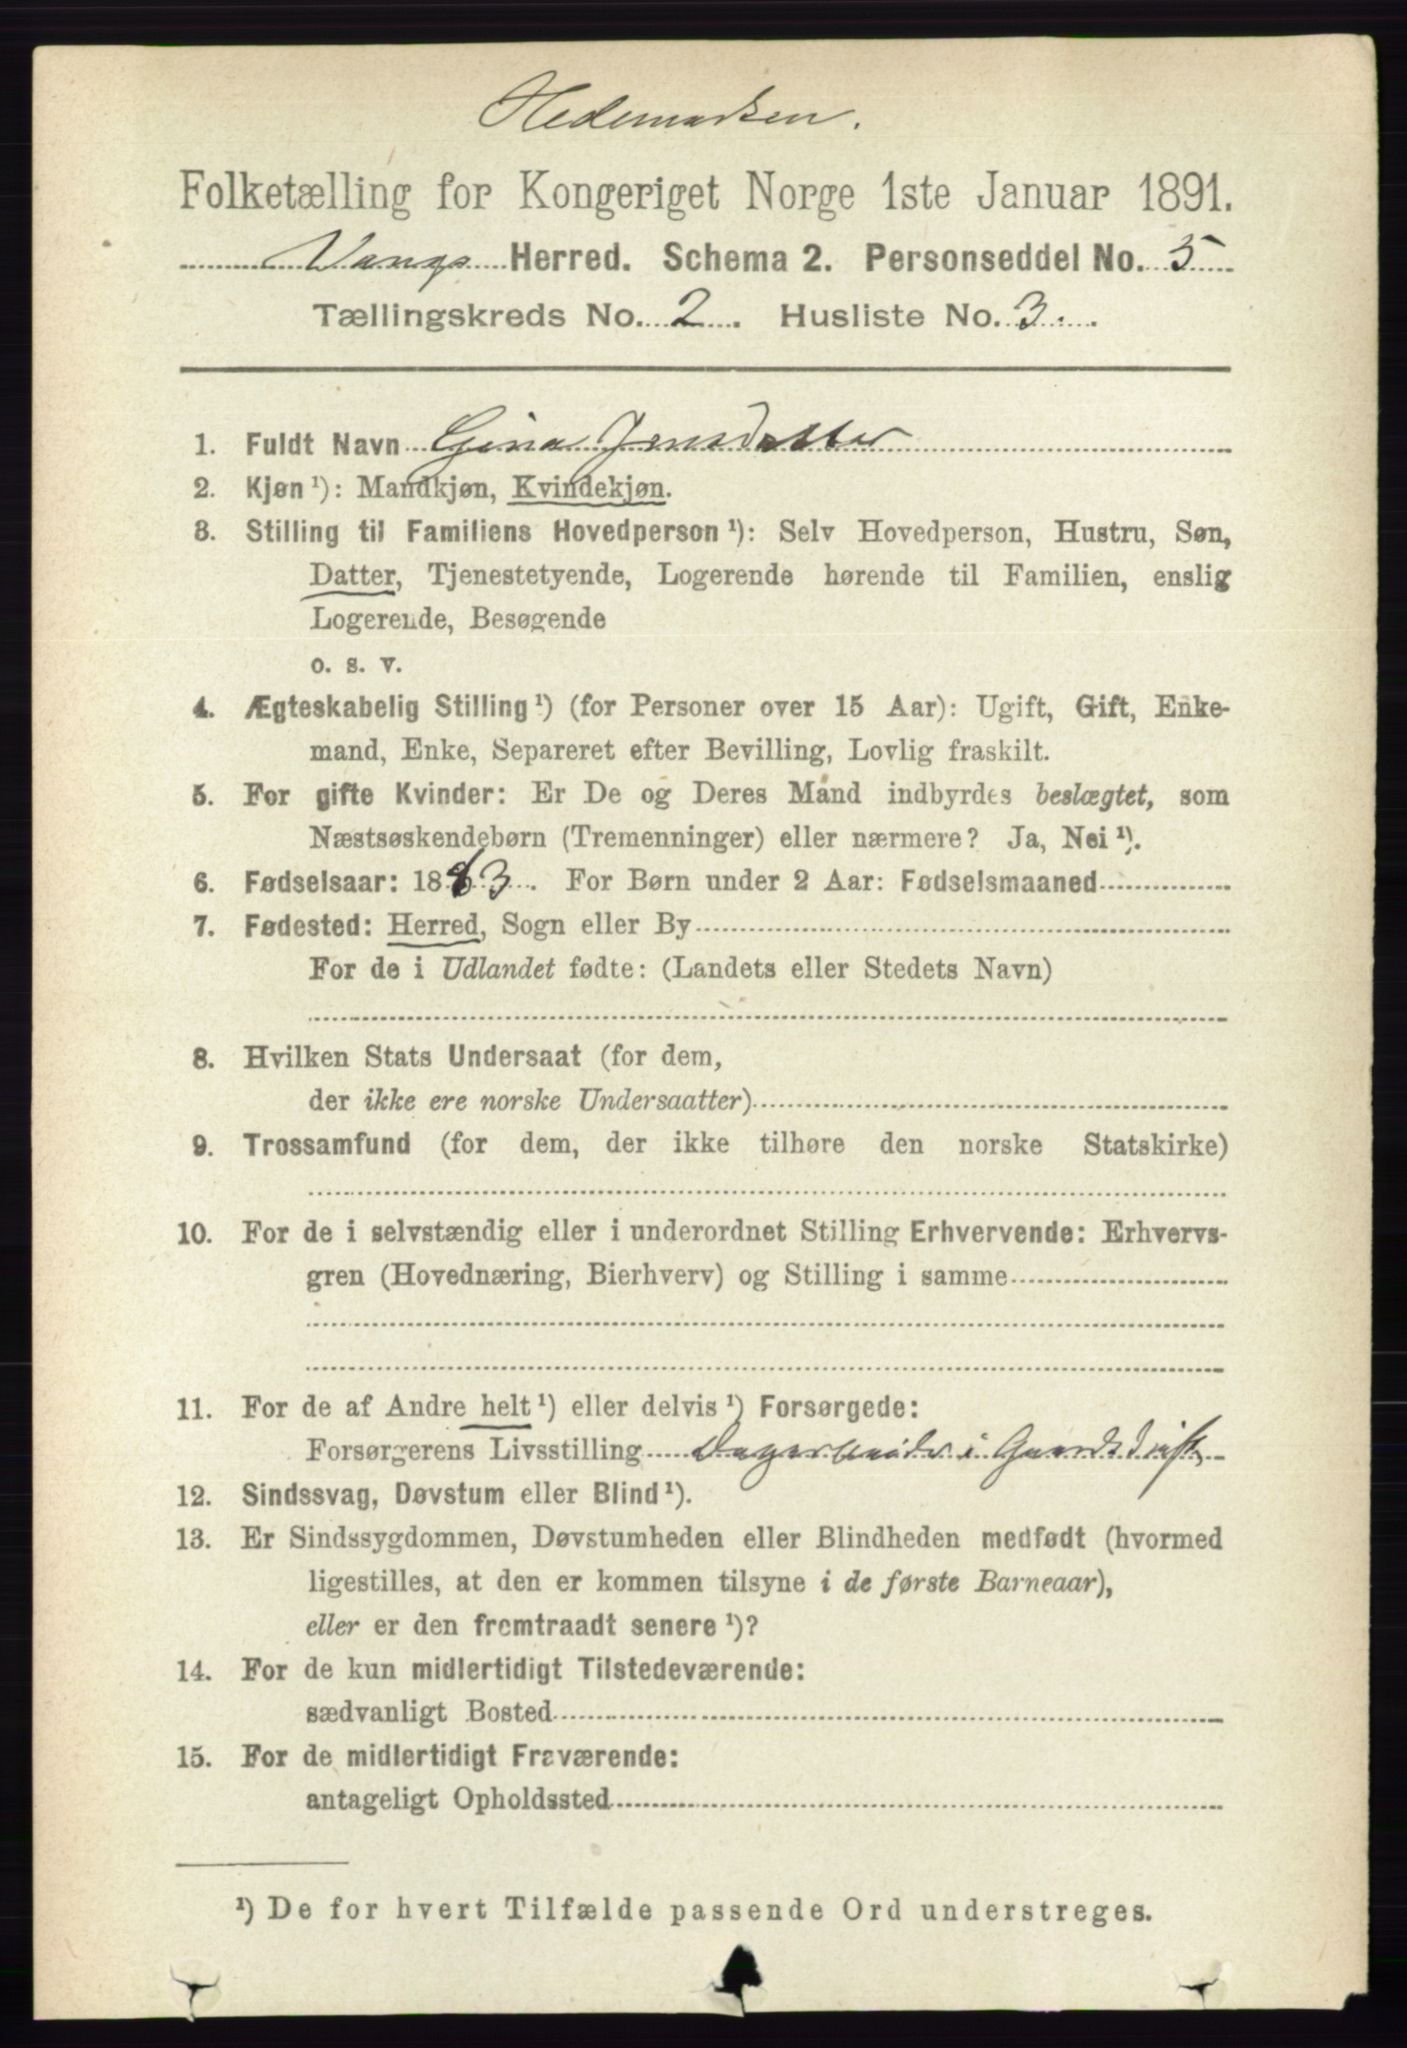 Hedemarken.
Folketælling for Kongeriget Norge 1ste Januar 1891.
Vangs Herred. Schema 2. Personseddel No. 5
Tællingskreds No. 2. Husliste No. 3.
1. Fuldt Navn Gina Jensdatter
2. Kjøn ¹): Mandkjøn, Kvindekjøn.
3. Stilling til Familiens Hovedperson ¹): Selv Hovedperson, Hustru, Søn,
Datter, Tjenestetyende, Logerende hørende til Familien, enslig
Logerende, Besøgende
o. s. v.
4. Ægteskabelig Stilling ¹) (for Personer over 15 Aar): Ugift, Gift, Enke-
mand, Enke, Separeret efter Bevilling, Lovlig fraskilt.
5. For gifte Kvinder: Er De og Deres Mand indbyrdes beslægtet, som
Næstsøskendebørn (Tremenninger) eller nærmere? Ja, Nei ¹).
6. Fødselsaar: 1883. For Børn under 2 Aar: Fødselsmaaned
7. Fødested: Herred, Sogn eller By
For de i Udlandet fødte: (Landets eller Stedets Navn)
8. Hvilken Stats Undersaat (for dem,
der ikke ere norske Undersaatter)
9. Trossamfund (for dem, der ikke tilhøre den norske Statskirke)
10. For de i selvstændig eller i underordnet Stilling Erhvervende: Erhvervs-
gren (Hovednæring, Bierhverv) og Stilling i samme
11. For de af Andre helt ¹) eller delvis ¹) Forsørgede:
Forsørgerens Livsstilling Dagarbeider i Gaardsdrift
12. Sindssvag, Døvstum eller Blind ¹).
13. Er Sindssygdommen, Døvstumheden eller Blindheden medfødt (hvormed
ligestilles, at den er kommen tilsyne i de første Barneaar),
eller er den fremtraadt senere ¹)?
14. For de kun midlertidigt Tilstedeværende:
sædvanligt Bosted
15. For de midlertidigt Fraværende:
antageligt Opholdssted
¹) De for hvert Tilfælde passende Ord understreges.